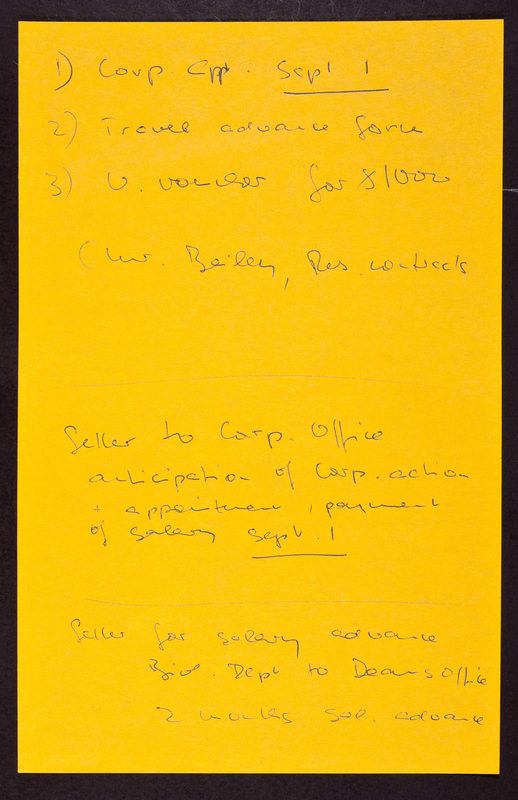 1) Corp. App't. Sept 1
2) Travel advance form
3) U. voucher for $1000
(Mr. Bailey, Res. contracts
Letter to Corp. Office
anticipation of Corp. action
+ appointment, payment
of salary Sept. 1
Letter for salary advance
Biol. Dept to Deans Office
2 weeks sal. advance